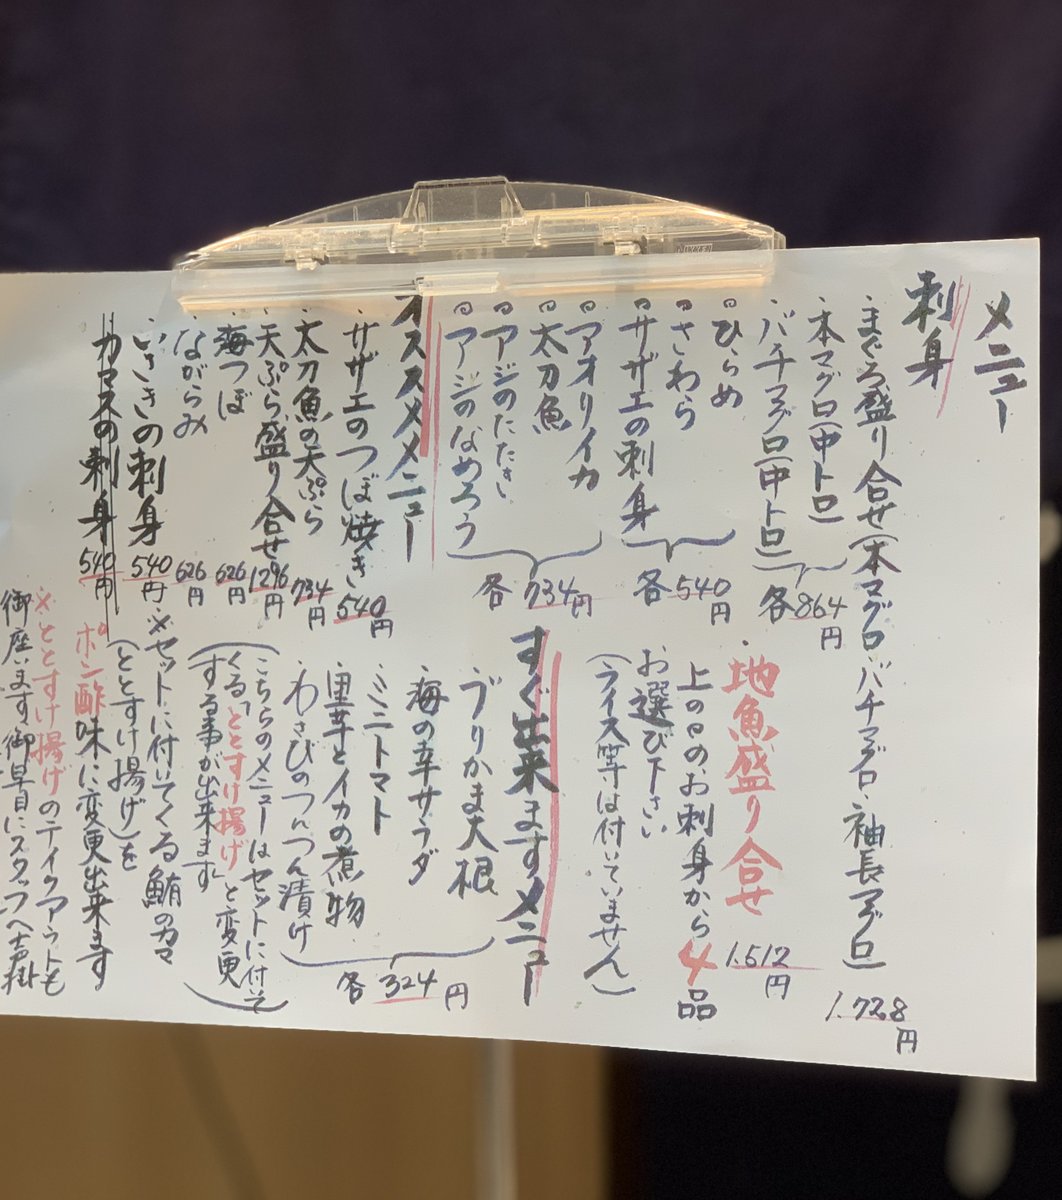 メニュー
刺身
・まぐろ盛り合せ(本マグロ・バチマグロ・袖長マグロ) 1.728円
・本マグロ(中トロ)
・バチマグロ(中トロ)
各864円
◎ひらめ
◎さわら
◎サザエの刺身
各540円
◎アオリイカ
◎太刀魚
◎アジのたたき
◎アジのなめろう
各734円
・地魚盛り合せ 1.512円
上の◎のお刺身から4品
お選び下さい
(ライス等は付いていません)
オススメメニュー
・サザエのつぼ焼き 540円
・太刀魚の天ぷら 734円
・天ぷら盛り合せ 1296円
・海つぼ 626円
・ながらみ 626円
・いさきの刺身 540円
・カマスの刺身 540円
すぐ出来ますメニュー
・ブリかま大根
・海の幸サラダ
・ミニトマト
・里芋とイカの煮物
・わさびのつんつん漬け
各324円
(こちらのメニューはセットに付いて
くる「ととすけ揚げ」と変更
する事が出来ます)
※セットに付いてくる鮪のカマ
(ととすけ揚げ)を
ポン酢味に変更出来ます
※ととすけ揚げのテイクアウトも
御座います。御早目にスタッフへ声掛